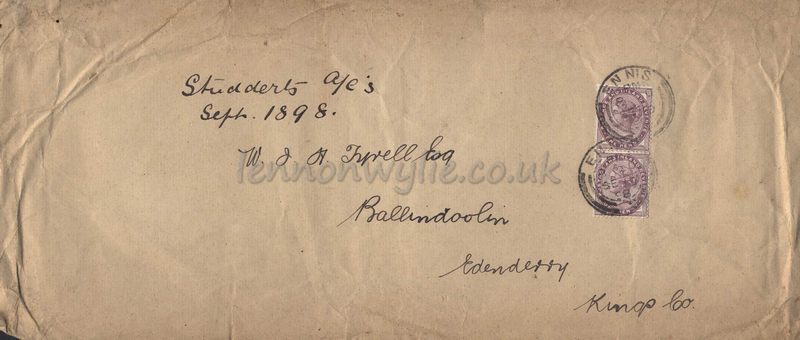 Studderts a/c's
Sept. 1898.
W. J. H. Tyrell Esq
Ballindoolin
Edenderry
Kings Co.
ENNIS
lennonwylie.co.uk